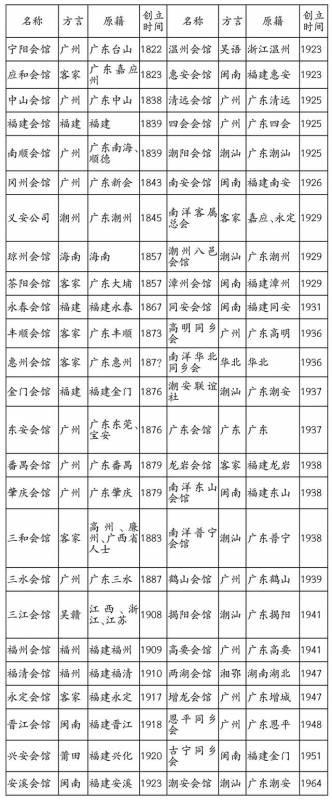 名称 方言 原籍 创立时间 名称 方言 原籍 创立时间
宁阳会馆 广州 广东台山 1822 温州会馆 吴语 浙江温州 1923
应和会馆 客家 广东嘉应州 1823 惠安会馆 闽南 福建惠安 1923
中山会馆 广州 广东中山 1838 清远会馆 广州 广东清远 1925
福建会馆 福建 福建 1839 四会会馆 广州 广东四会 1925
南顺会馆 广州 广东南海、顺德 1839 潮阳会馆 潮汕 广东潮汕 1925
冈州会馆 广州 广东新会 1843 南安会馆 闽南 福建南安 1926
义安公司 潮州 广东潮州 1845 南洋客属总会 客家 嘉应、永定 1929
琼州会馆 海南 海南 1857 潮州八邑会馆 潮汕 广东潮州 1929
茶阳会馆 客家 广东大埔 1857 漳州会馆 闽南 福建漳州 1929
永春会馆 福建 福建永春 1867 同安会馆 闽南 福建同安 1931
丰顺会馆 客家 广东丰顺 1873 高明同乡会 广州 广东高明 1936
惠州会馆 客家 广东惠州 187? 南洋华北同乡会 华北 华北 1936
金门会馆 福建 福建金门 1876 潮安联谊社 潮汕 广东潮安 1937
东安会馆 广州 广东东莞、宝安 1876 广东会馆 广东 广东 1937
番禺会馆 广州 广东番禺 1879 龙岩会馆 客家 福建龙岩 1938
肇庆会馆 广州 广东肇庆 1879 南洋东山会馆 闽南 福建东山 1938
三和会馆 客家 高州、廉州、广西省人士 1883 南洋普宁会馆 潮汕 广东普宁 1938
三水会馆 广州 广东三水 1887 鹤山会馆 广州 广东鹤山 1939
三江会馆 吴赣 江西、浙江、江苏 1908 揭阳会馆 潮汕 广东揭阳 1941
福州会馆 福州 福建福州 1909 高要会馆 广州 广东高要 1941
福清会馆 福州 福建福清 1910 两湖会馆 湘鄂 湖南湖北 1947
永定会馆 客家 福建永定 1917 增龙会馆 广州 广东增城 1947
晋江会馆 闽南 福建晋江 1918 恩平同乡会 广州 广东恩平 1948
兴安会馆 莆田 福建兴化 1920 古宁同乡会 闽南 福建金门 1951
安溪会馆 闽南 福建安溪 1923 潮安会馆 潮汕 广东潮安 1964